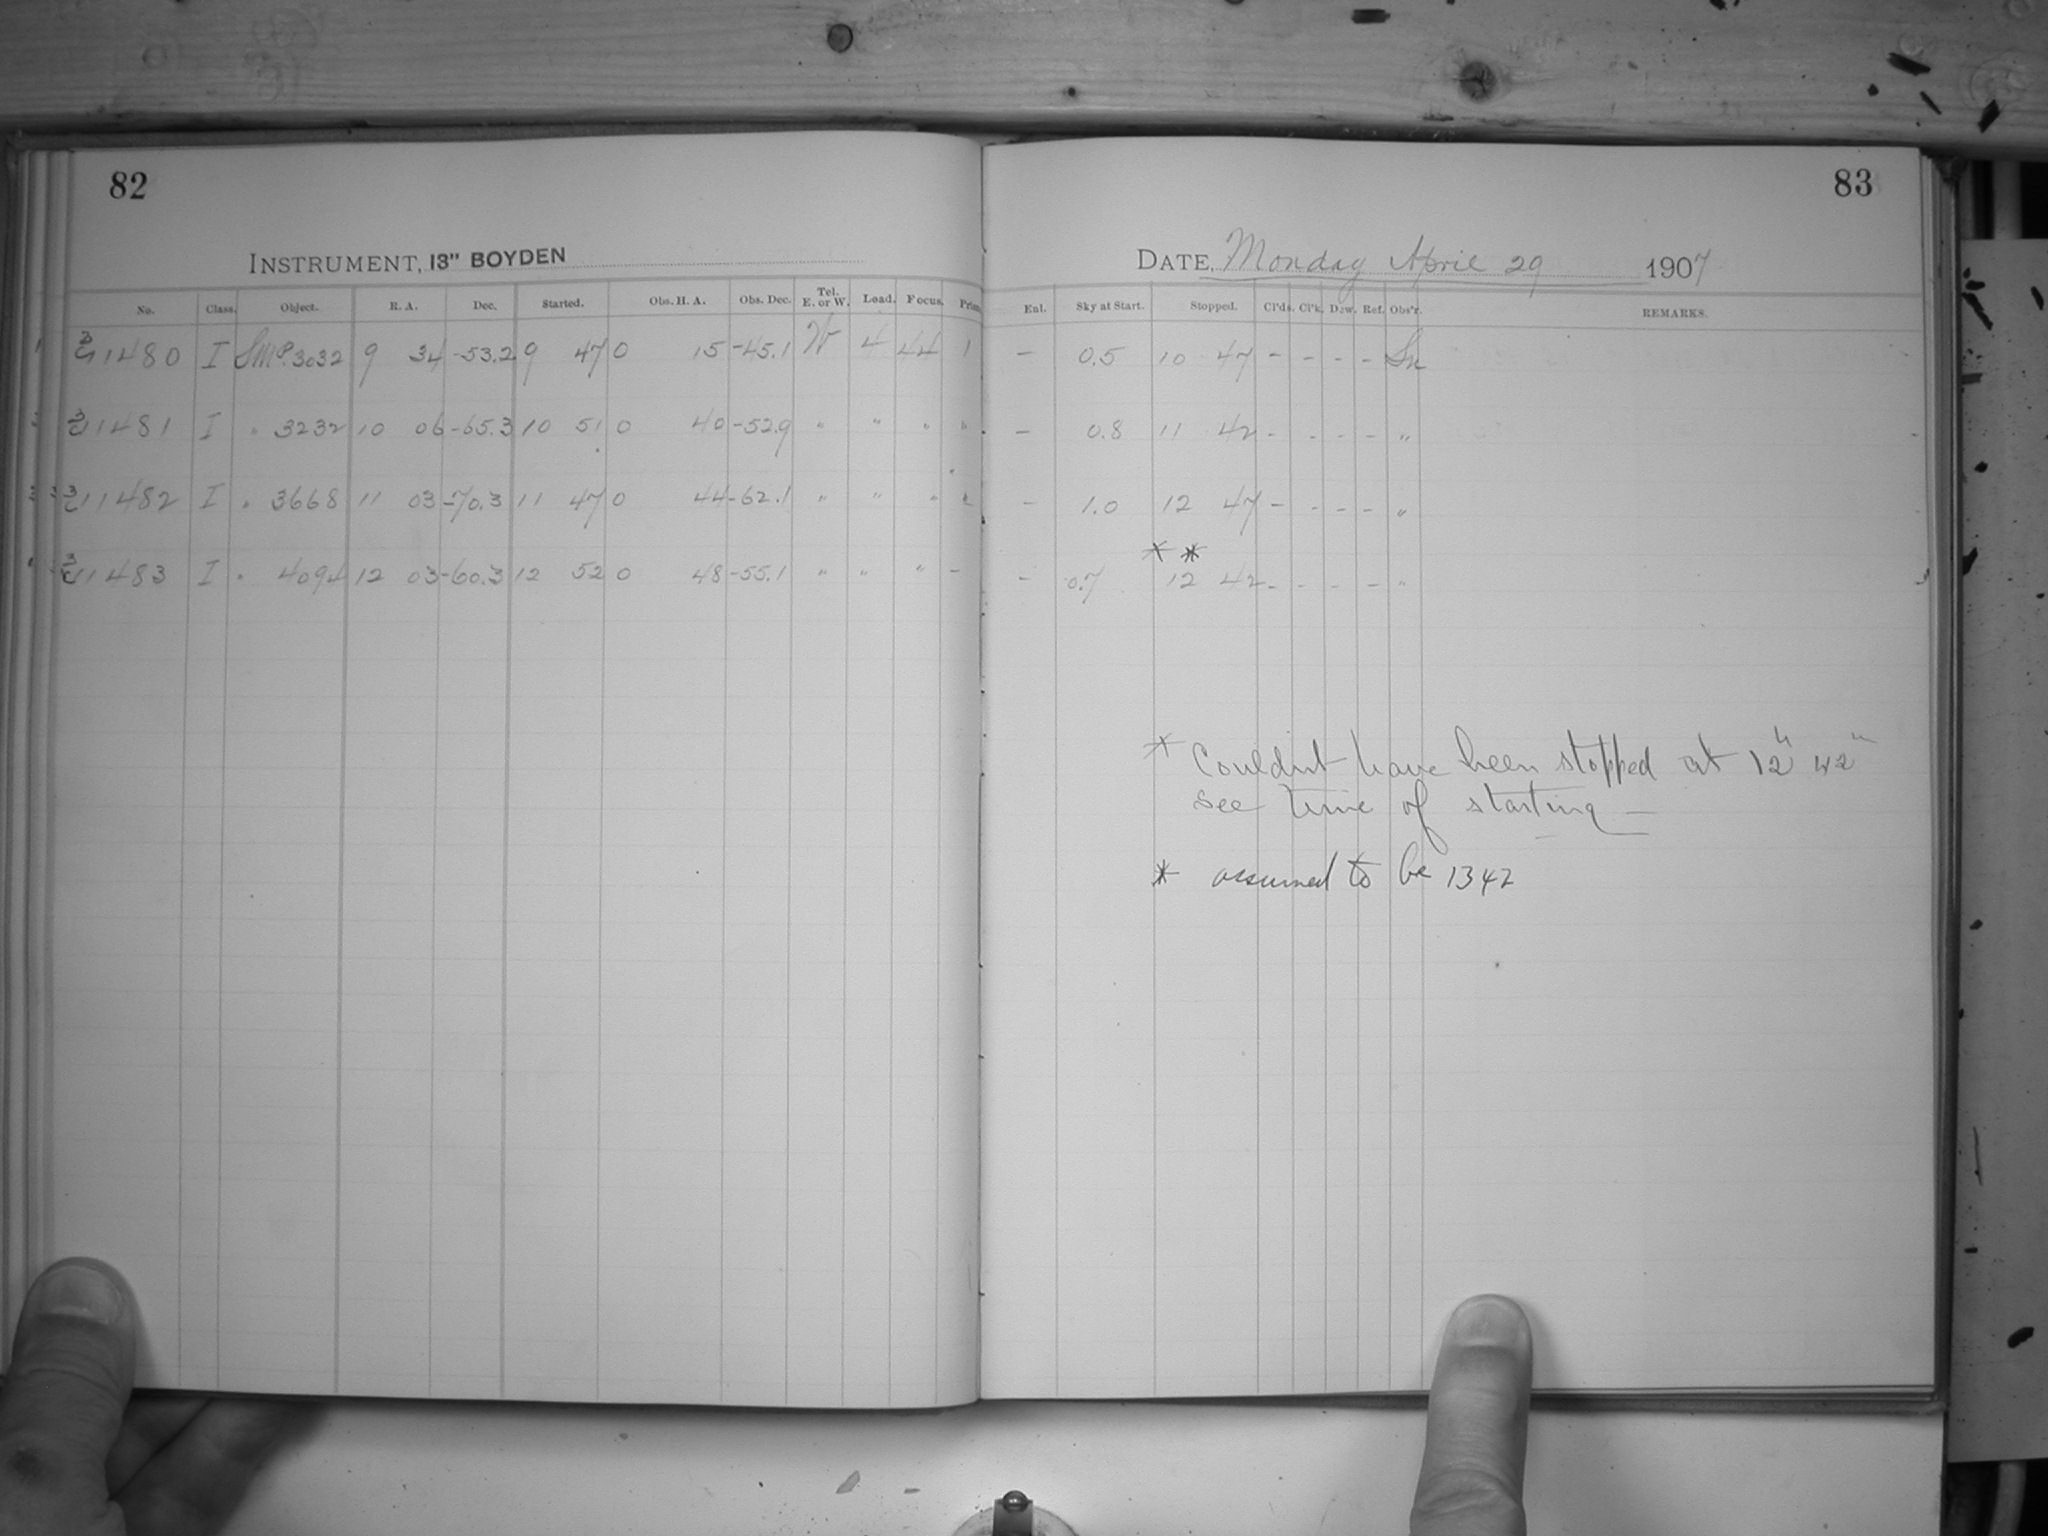 82
83
INSTRUMENT, 13" BOYDEN
DATE, Monday April 29 1907
No. Class. Object. R. A. Dec. Started. Obs. H. A. Obs. Dec. Tel. E. or W. Load. Focus. Prism
Enl. Sky at Start. Stopped. Cl'ds. Cl'k. Dew. Ref. Obs'r. REMARKS.
11480 I SMP. 3032 9 34 -53.2 9 47 0 15 -45.1 W 4 44 1 — 0.5 10 47 - - - - Sn
11481 I " 3232 10 06 -65.3 10 51 0 40 -52.9 " " " " — 0.8 11 42 - - - - "
11482 I " 3668 11 03 -70.3 11 47 0 44 -62.1 " " " " — 1.0 12 47 - - - - "
* *
11483 I " 4094 12 03 -60.3 12 52 0 48 -55.1 " " " - - 0.7 12 42 - - - - "
* Couldnt have been stopped at 12h 42m
see time of starting —
* assumed to be 1342